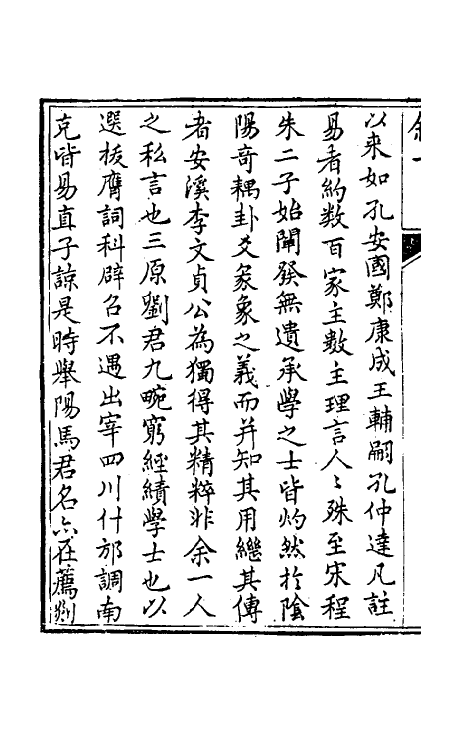 以来如孔安國鄭康成王輔嗣孔仲達凡註
易者約数百家主数主理言人〻殊至宋程
朱二子始闡發無遺承學之士皆灼然扵陰
陽竒耦卦爻彖象之義而并知其用繼其傳
者安溪李文貞公為獨得其精粹非余一人
之私言也三原劉君九畹窮經績學士也以
選拔膺詞科辟召不遇出宰四川什邡調南
充皆易直子諒是時舉陽馬君名亦在薦剡